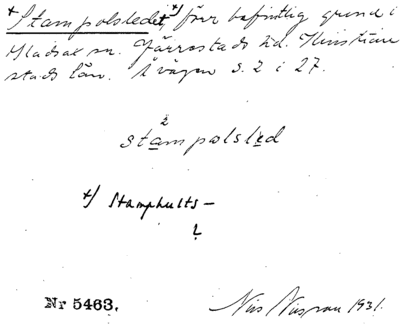 +Stampolsledet,+) förr befintlig grind i
Kladsax sn. Järrestads hd. Kristian-
stads län. Å vägen s. 2 i 27.
2
stampolsled
+) Stamphults-
?
Nr 5463.
Nils 1931.